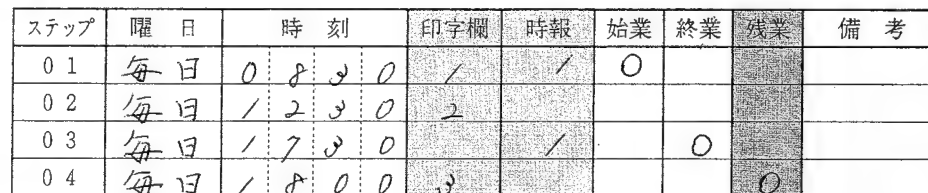 ステップ 曜日 時刻 印字欄 時報 始業 終業 残業 備考
01 毎日 0830 1 1 ○
02 毎日 1230 2
03 毎日 1730 1 ○
04 毎日 1800 3 ○